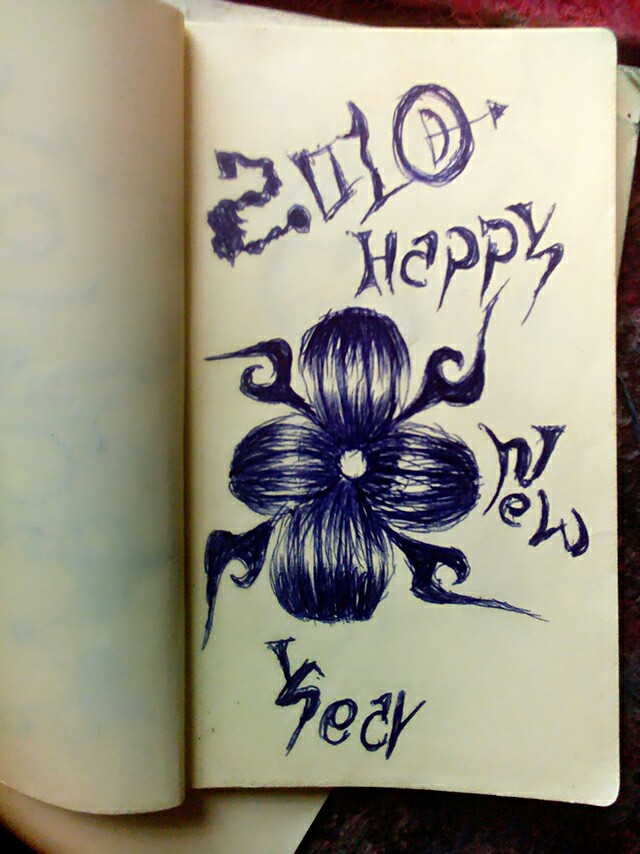 2010
Happy
New
Year